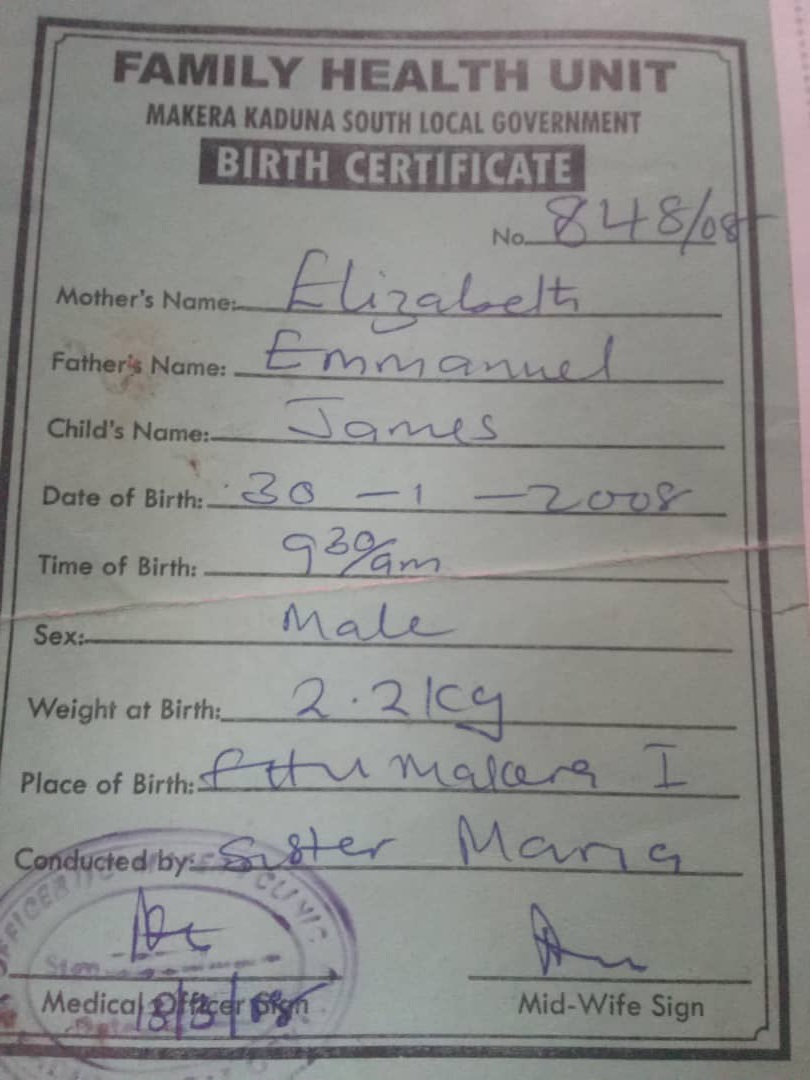 FAMILY HEALTH UNIT
MAKERA KADUNA SOUTH LOCAL GOVERNMENT
BIRTH CERTIFICATE
No. 848/08
Mother's Name: Elizabeth
Father's Name: Emmanuel
Child's Name: James
Date of Birth: 30 - 1 - 2008
Time of Birth: 9 30/am
Sex: Male
Weight at Birth: 2.2kg
Place of Birth: FHU Makera I
Conducted by: Sister Maria
OFFICER CLINIC
Sign
Medical Officer Sign Mid-Wife Sign